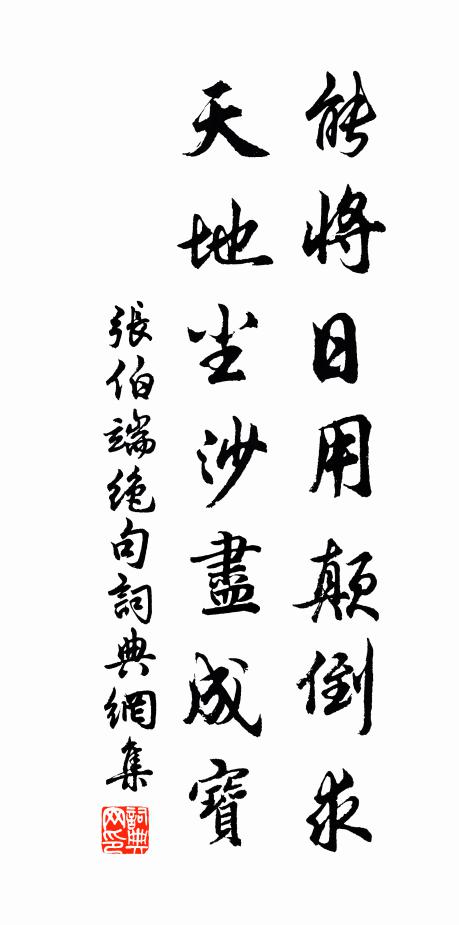 能將日用顛倒求
天地尘沙盡成寶
張伯端絶句詞典網集
詞典
网印